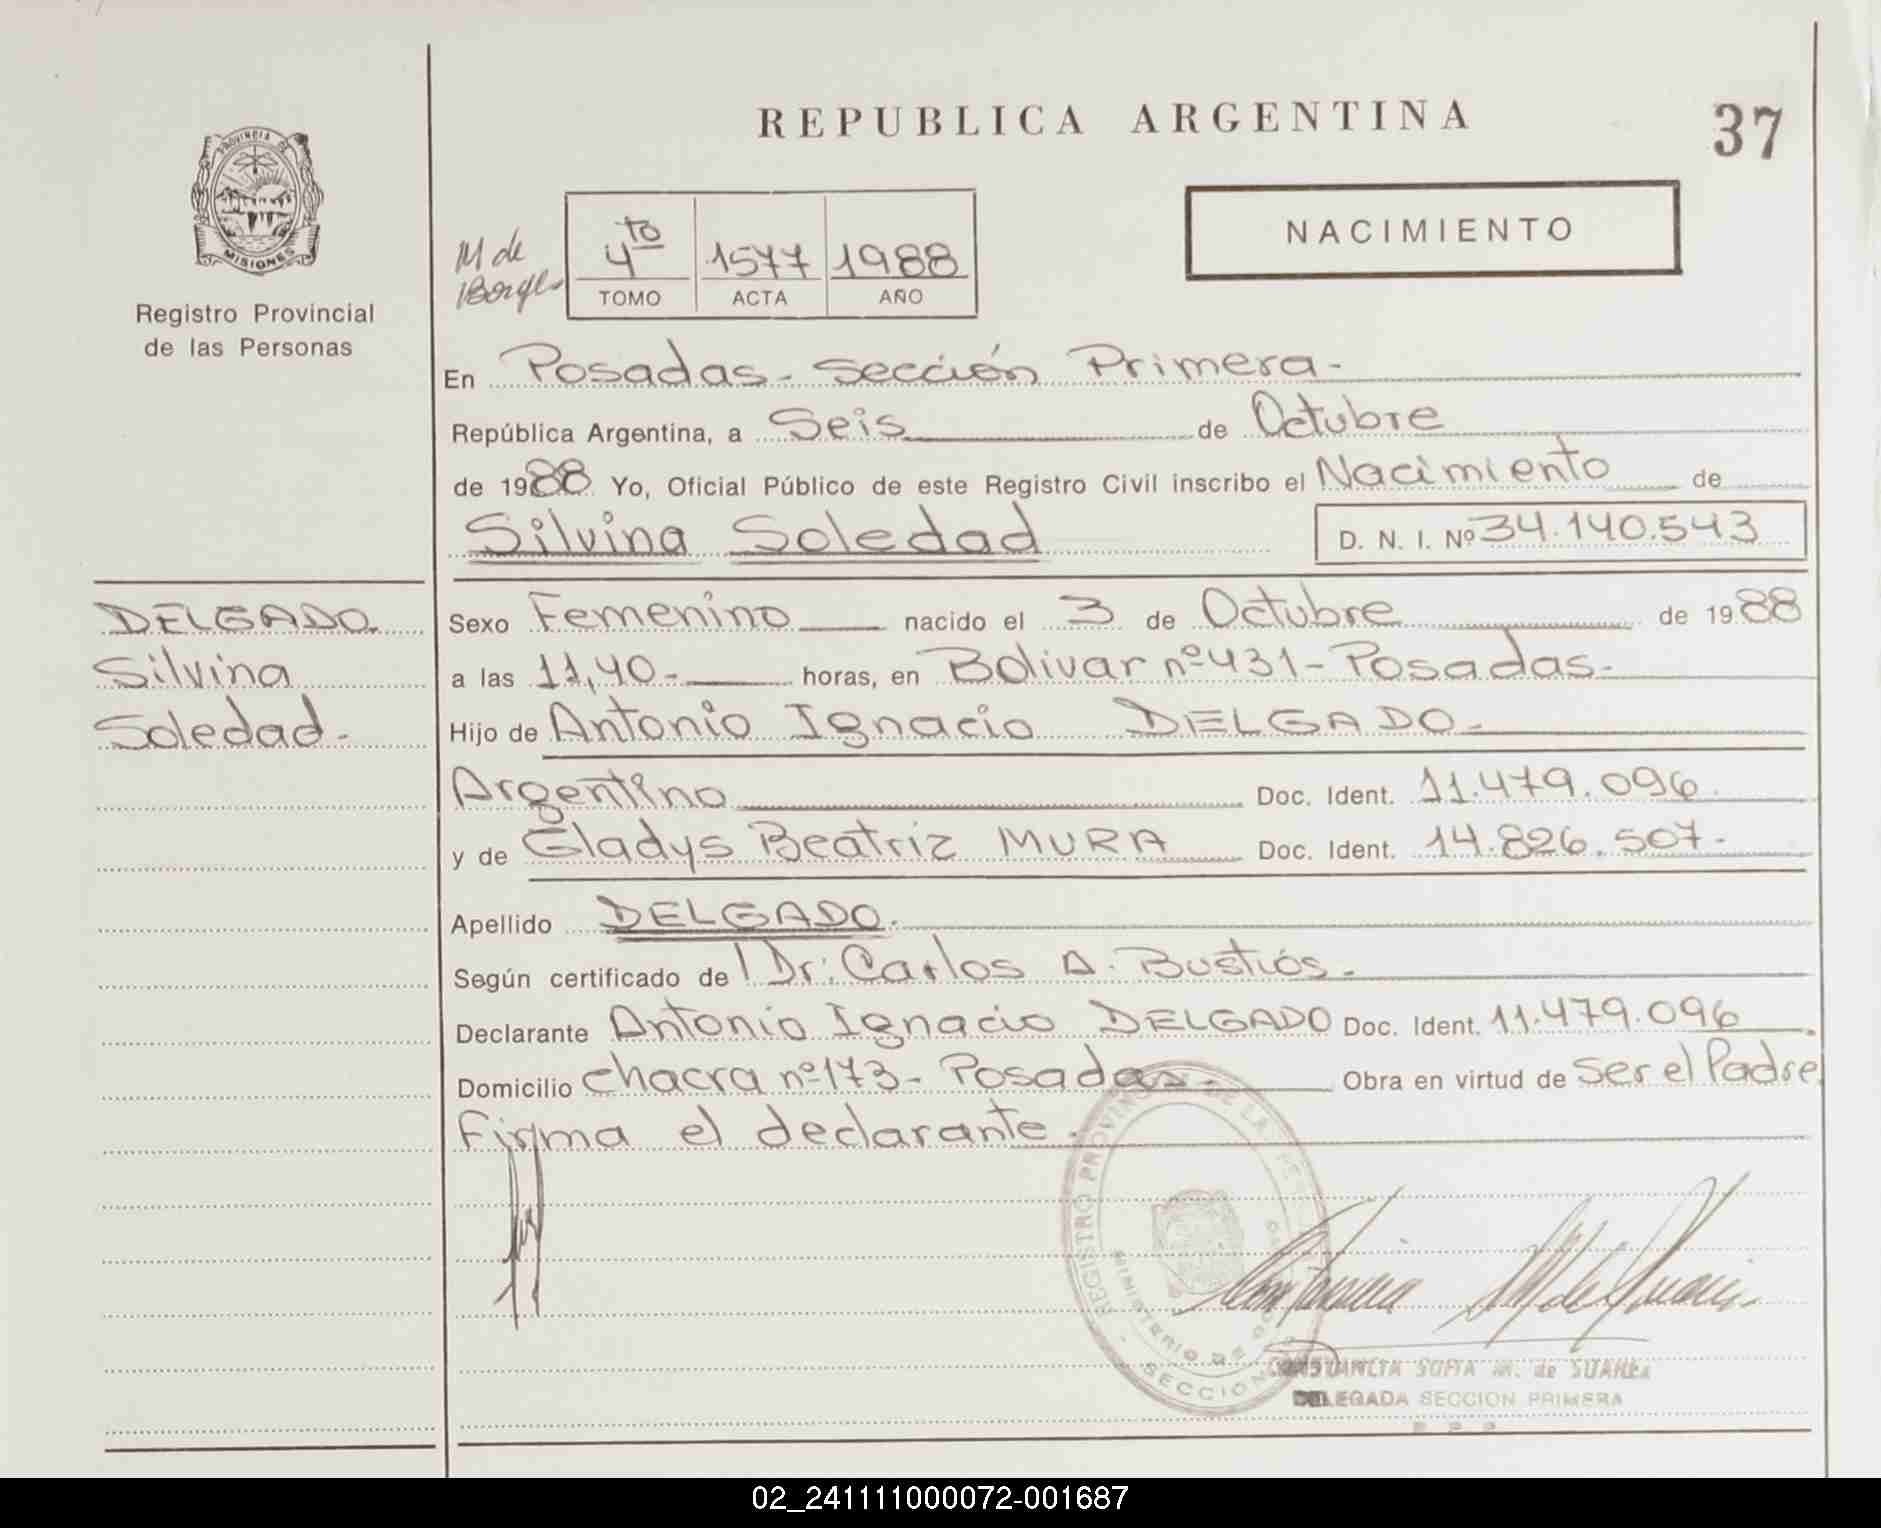 REPUBLICA ARGENTINA
37
PROVINCIA DE
MISIONES
Registro Provincial
de las Personas
NACIMIENTO
M de
4to 1577 1988
TOMO ACTA AÑO
En Posadas - Sección Primera -
República Argentina, a Seis de Octubre
de 1988 Yo, Oficial Público de este Registro Civil inscribo el Nacimiento de
Silvina Soledad D. N. I. Nº 34.140.543
DELGADO
Silvina
Soledad -
Sexo Femenino nacido el 3 de Octubre de 1988
a las 11,40 - horas, en Bolivar nº 431 - Posadas -
Hijo de Antonio Ignacio DELGADO -
Argentino Doc. Ident. 11.479.096
y de Gladys Beatriz MURA Doc. Ident. 14.826.507 -
Apellido DELGADO.
Según certificado de Dr: Carlos A. Bustiós -
Declarante Antonio Ignacio DELGADO Doc. Ident. 11.479.096
Domicilio chacra nº 173 - Posadas - Obra en virtud de Ser el Padre
Firma el declarante -
REGISTRO PROVINCIAL DE LA
MINISTERIO DE GOBIERNO
SECCION
CONSTANCIA SOFIA M. de SUAREZ
DELEGADA SECCION PRIMERA
02_241111000072-001687